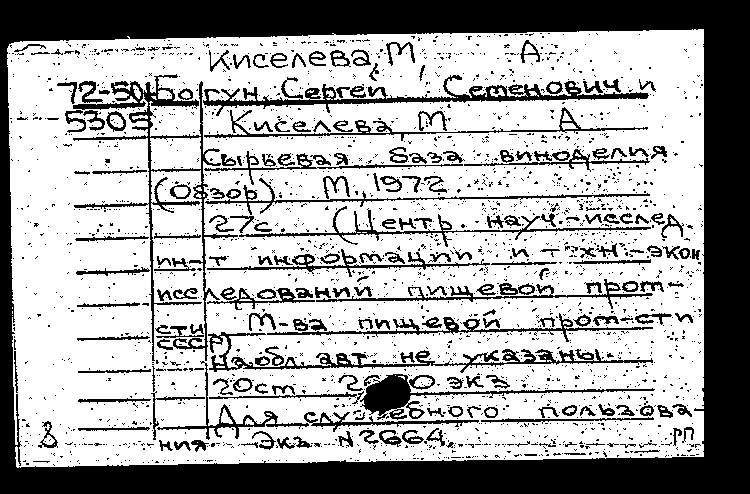 Киселева, М А
72-501 Богун, Сергей Семенович и
5305 Киселева, М А
Сырьевая база виноделия
(Обзор). М., 1972.
27с. (Центр. науч.-исслед.
ин-т информации и техн.-экон
исследований пищевой пром-
сти М-ва пищевой пром-сти
СССР)
На обл. авт. не указаны.
20ст. экз.
Для служебного пользова-
ния Экз. N 2664.
РП